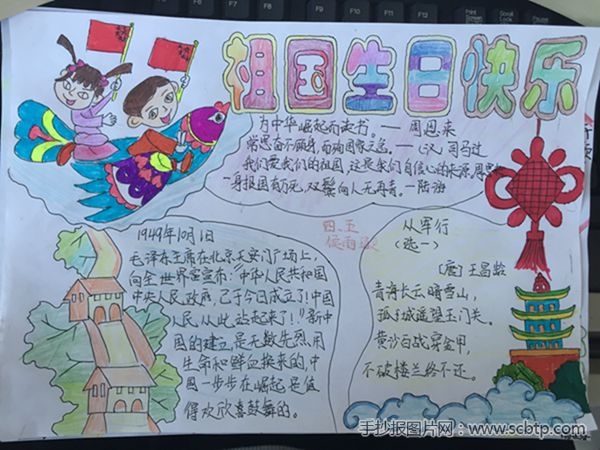 祖国生日快乐
为中华崛起而读书。——周恩来
常思奋不顾身,而殉国家之急。——(汉)司马迁
我们爱我们的祖国,这是我们自信心的来源。
一身报国有万死,双鬓向人无再青。—陆游
四.五
1949年10月1日
毛泽东主席在北京天安门广场上,
向全世界宣布:“中华人民共和国
中央人民政府,已于今日成立了!中国
人民,从此站起来了!”新中
国的建立,是无数先烈用
生命和鲜血换来的,中
国一步步在崛起是值
得欢欣鼓舞的。
从军行
(选一)
(唐)王昌龄
青海长云暗雪山,
孤城遥望玉门关。
黄沙百战穿金甲,
不破楼兰终不还。
手抄报图片网:www.scbtp.com
Print
Screen
Scroll
Lock
Pause